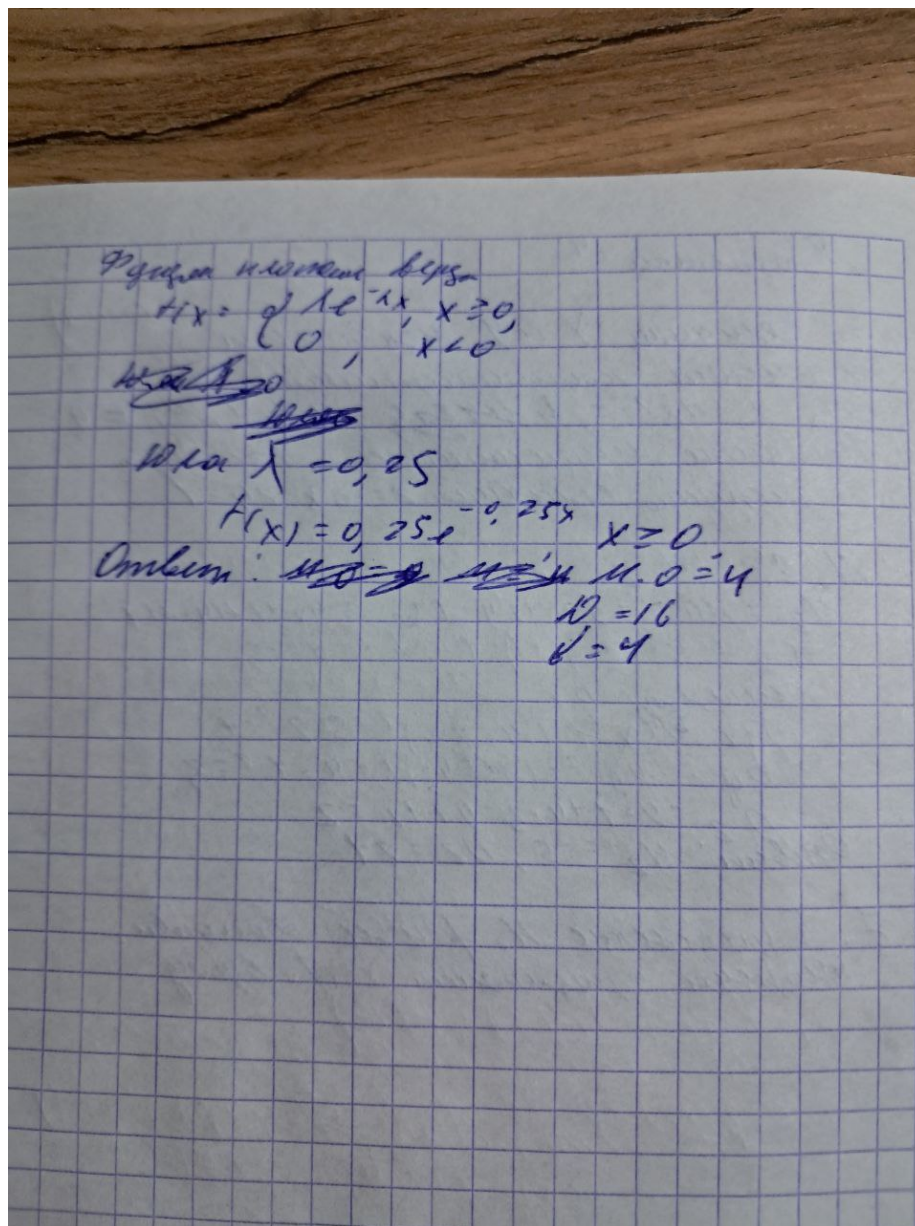 Фукция плотност вероя
f(x) = { λe^-λx, x ≥ 0,
0 , x < 0
λ = 0,25
f(x) = 0,25e^-0,25x x ≥ 0
Ответ: М.О = 4
D = 16
σ = 4